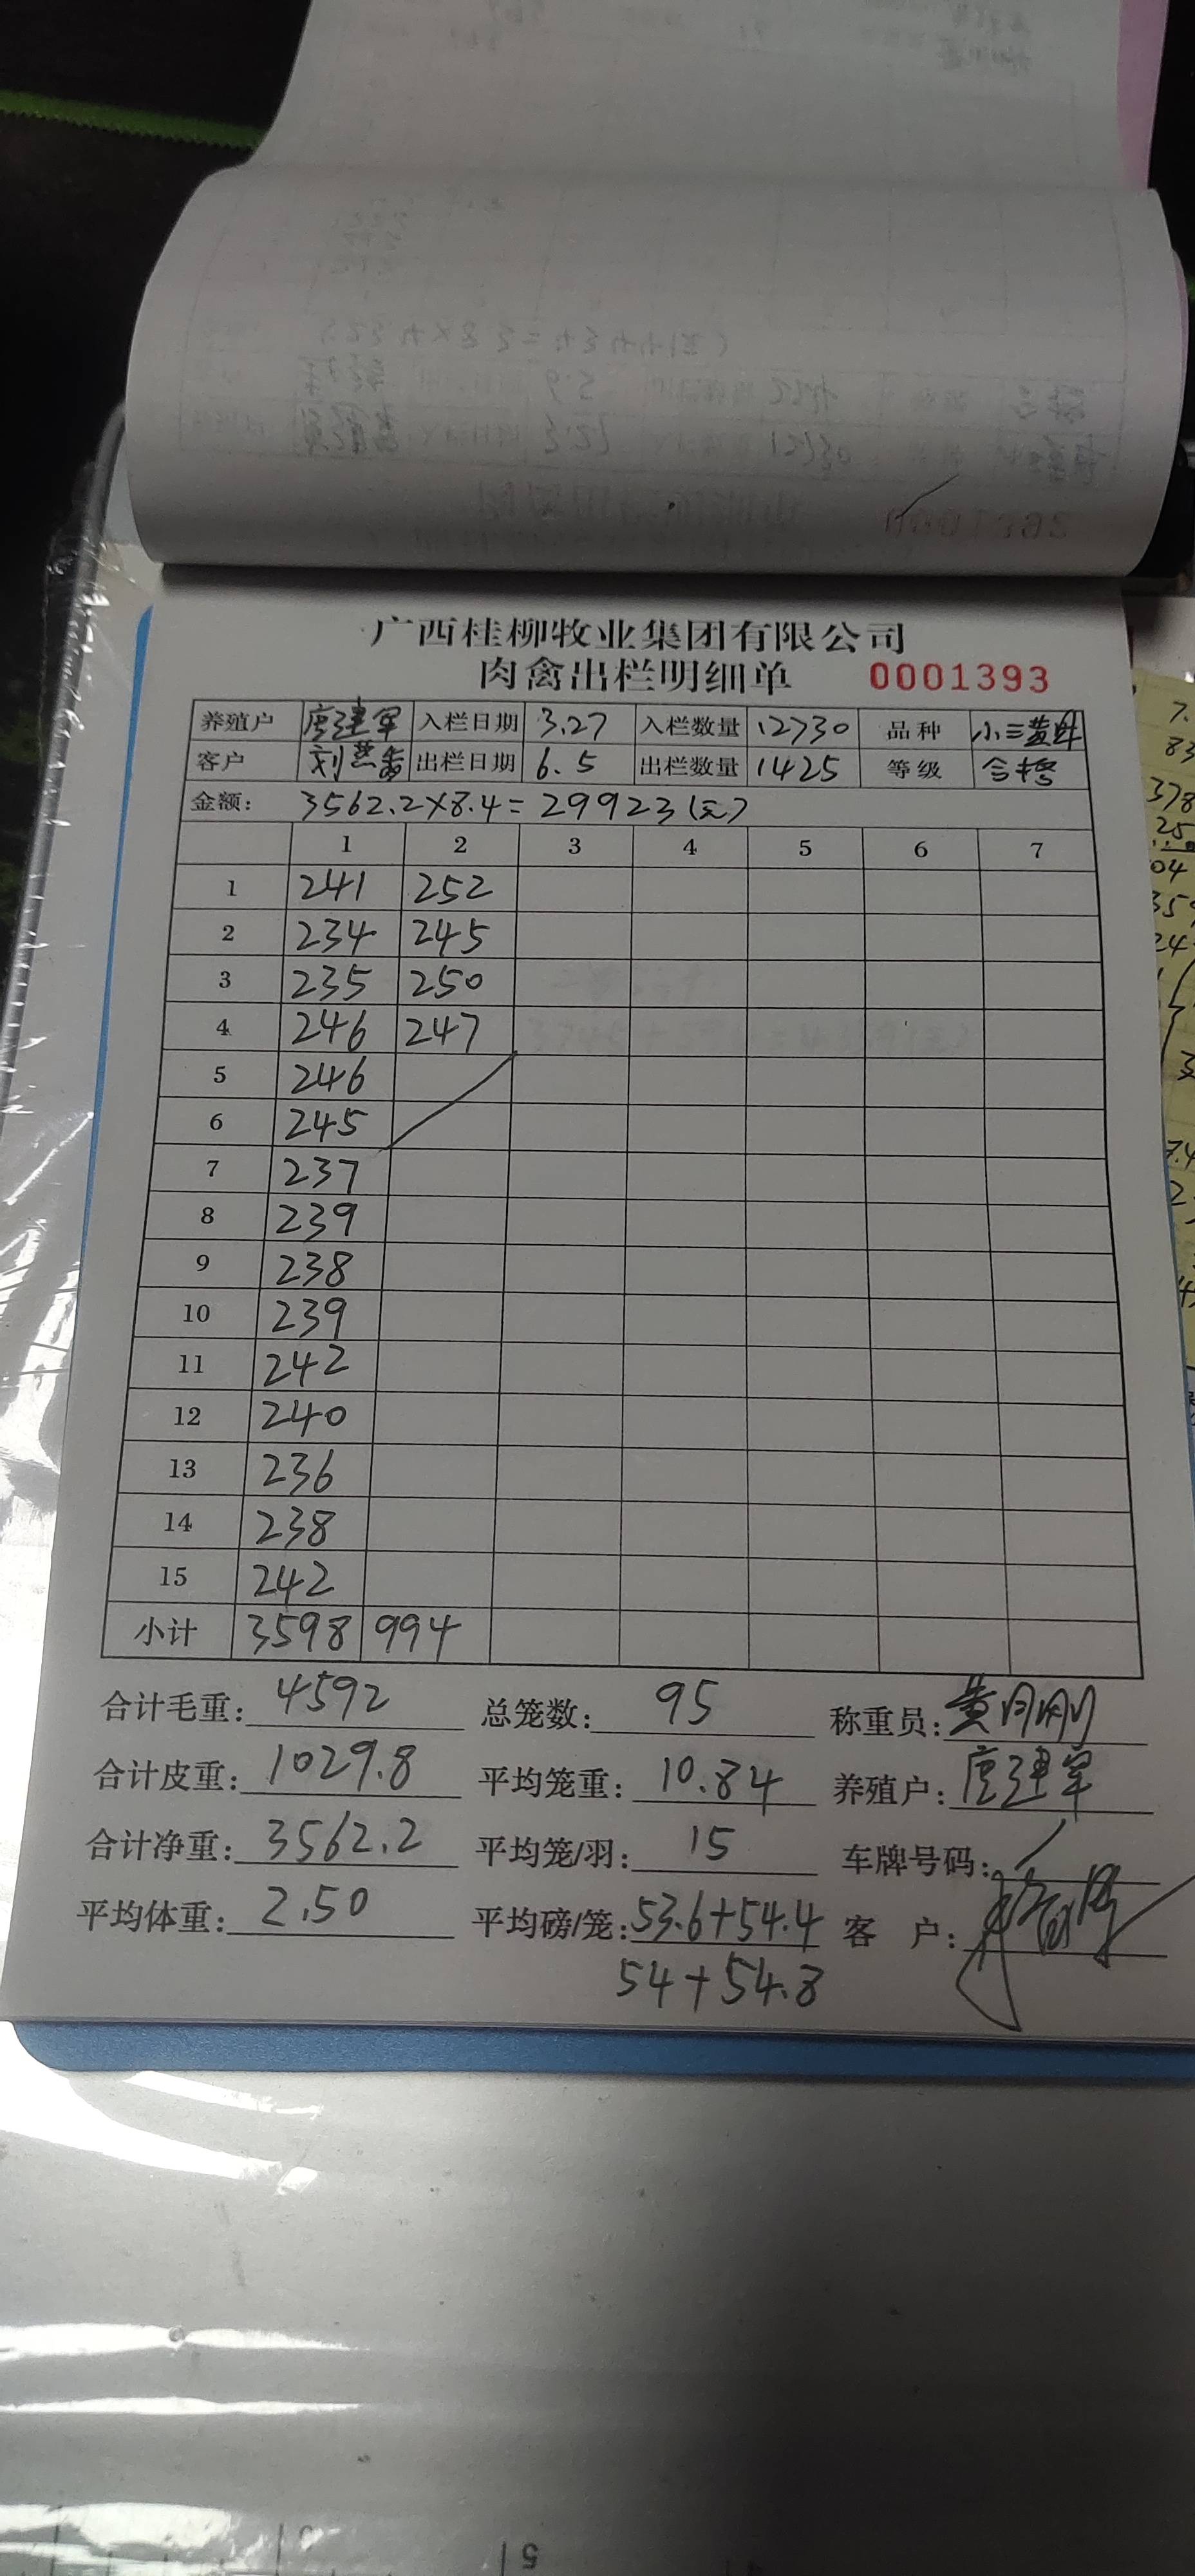 广西桂柳牧业集团有限公司
肉禽出栏明细单 0001393
养殖户 唐建军 入栏日期 3.27 入栏数量 12730 品种 小三黄
客户 刘 出栏日期 6.5 出栏数量 1425 等级 合格
金额: 3562.2×8.4=29923(元)
1 2 3 4 5 6 7
1 241 252
2 234 245
3 235 250
4 246 247
5 246
6 245
7 237
8 239
9 238
10 239
11 242
12 240
13 236
14 238
15 242
小计 3598 994
合计毛重: 4592 总笼数: 95 称重员: 黄
合计皮重: 1029.8 平均笼重: 10.84 养殖户: 唐建军
合计净重: 3562.2 平均笼/羽: 15 车牌号码: /
平均体重: 2.50 平均磅/笼: 53.6+54.4 客 户:
54+54.8